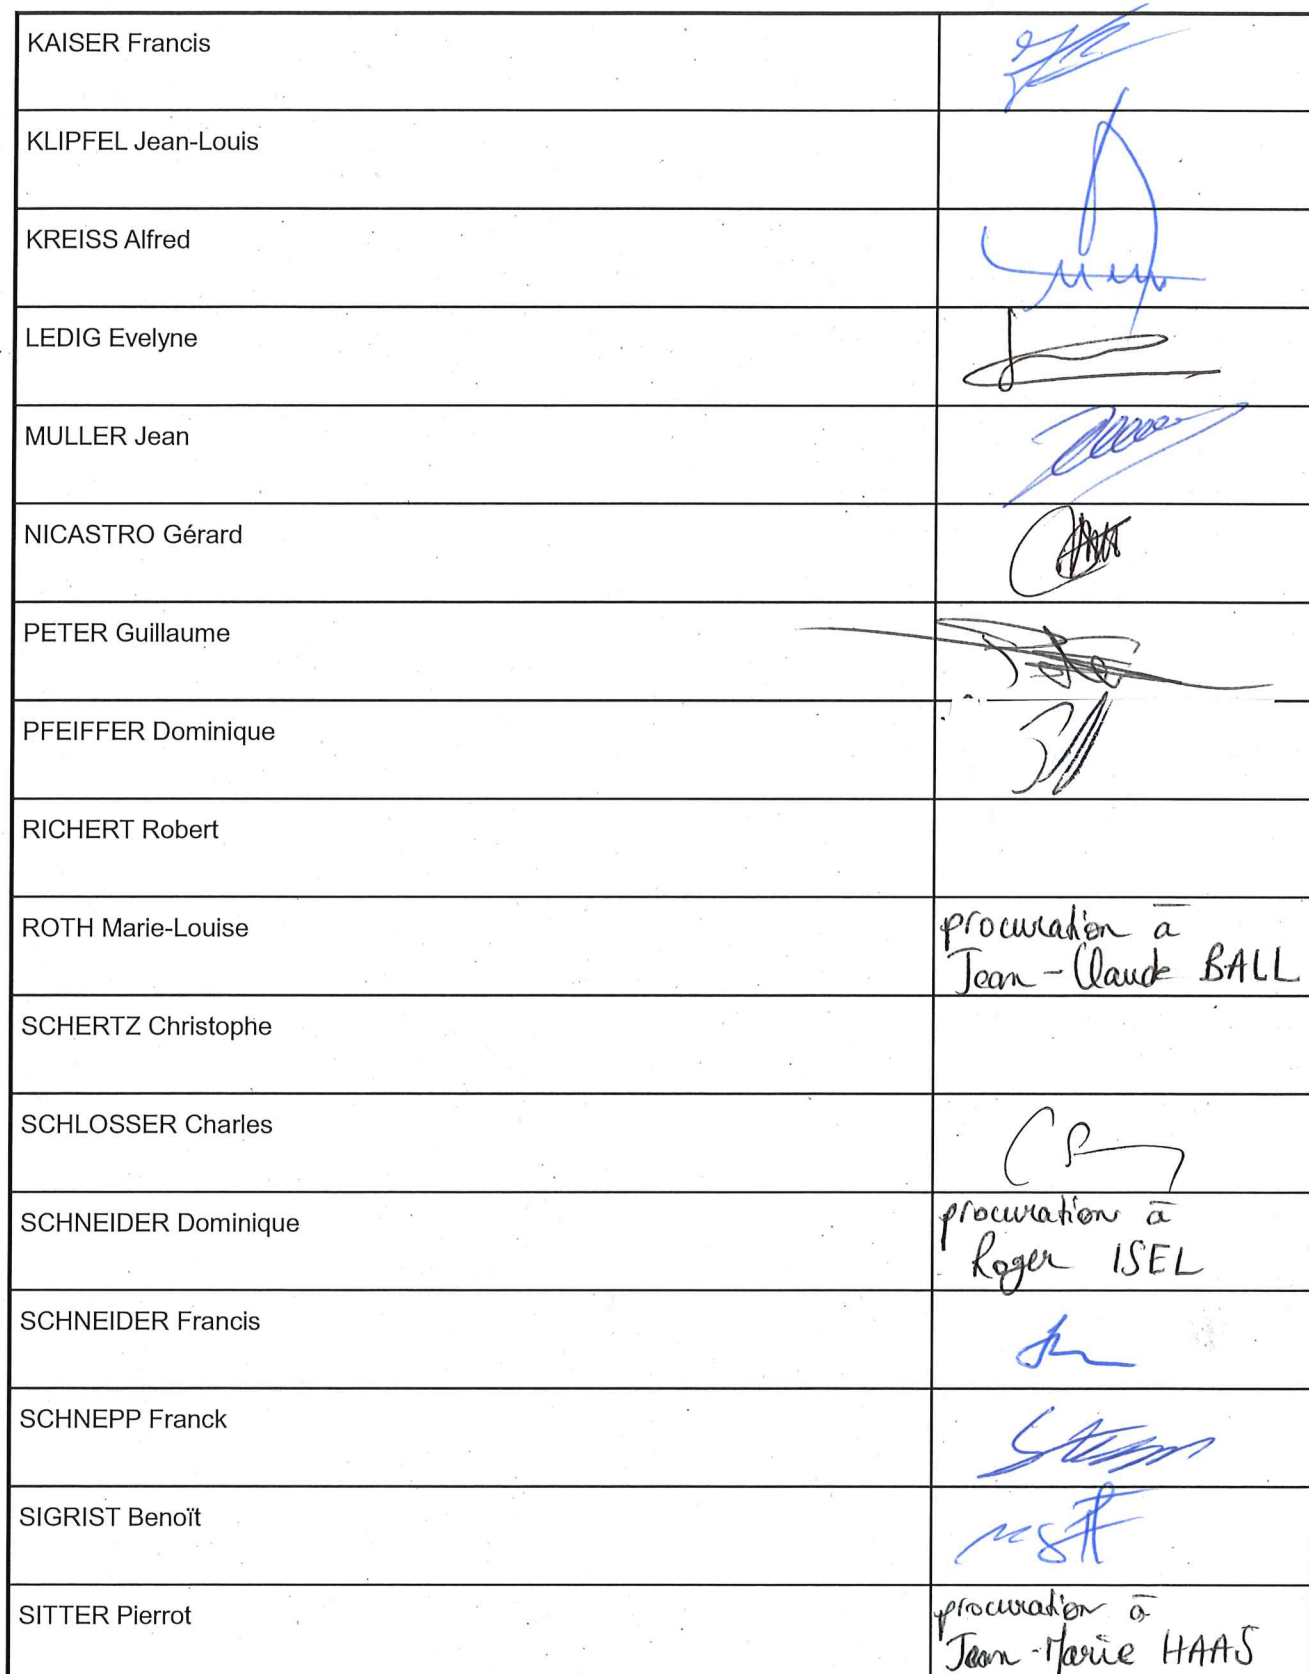 KAISER Francis
KLIPFEL Jean-Louis
KREISS Alfred
LEDIG Evelyne
MULLER Jean
NICASTRO Gérard
PETER Guillaume
PFEIFFER Dominique
RICHERT Robert
ROTH Marie-Louise
procuration à
Jean-Claude BALL
SCHERTZ Christophe
SCHLOSSER Charles
SCHNEIDER Dominique
procuration à
Roger ISEL
SCHNEIDER Francis
SCHNEPP Franck
SIGRIST Benoït
SITTER Pierrot
procuration à
Jean-Marie HAAS